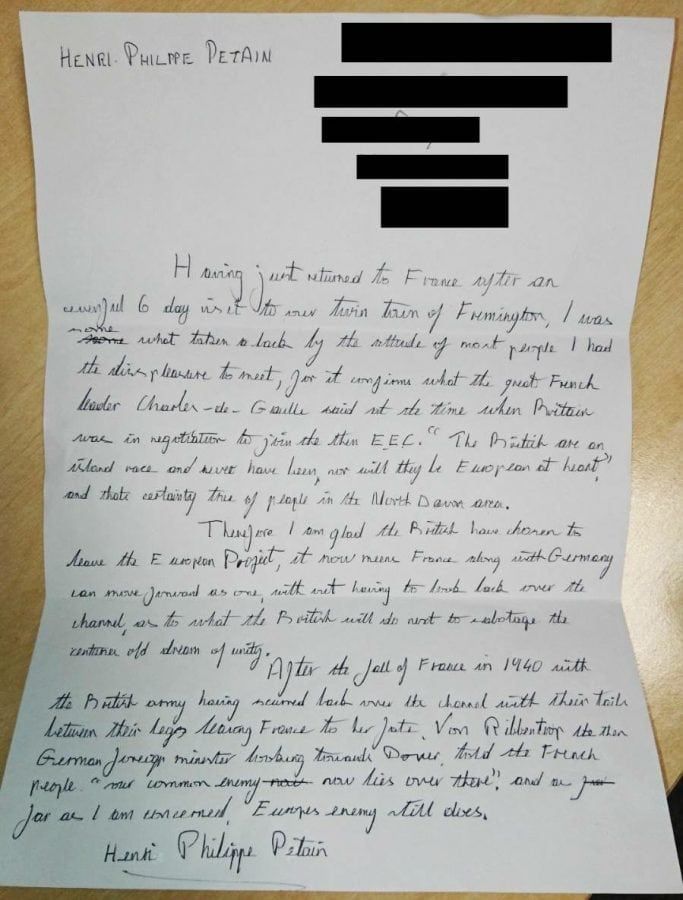 HENRI. PHILIPPE PETAIN
Having just returned to France after an
eventful 6 day visit to our twin town of Fremington, I was
some
what taken a back by the attitude of most people I had
the displeasure to meet, for it confirms what the great French
leader Charles-de-Gaulle said at the time when Britain
was in negotiation to join the then E.E.C. "The British are an
island race and never have been, nor will they be European at heart,"
and thats certainty true of people in the North Devon area.
Therefore I am glad the British have chosen to
leave the European Project, it now means France along with Germany
can move forward as one, with out having to look back over the
channel, as to what the British will do next to sabotage the
centuries old dream of unity.
After the fall of France in 1940 with
the British army having scurred back over the channel with their tails
between their legs leaving France to her fate, Von Ribbentrop the then
German foreign minester looking towards Dover, told the French
people. "our common enemy now lies over there", and as
far as I am concerned, Europes enemy still does.
Henri Philippe Petain